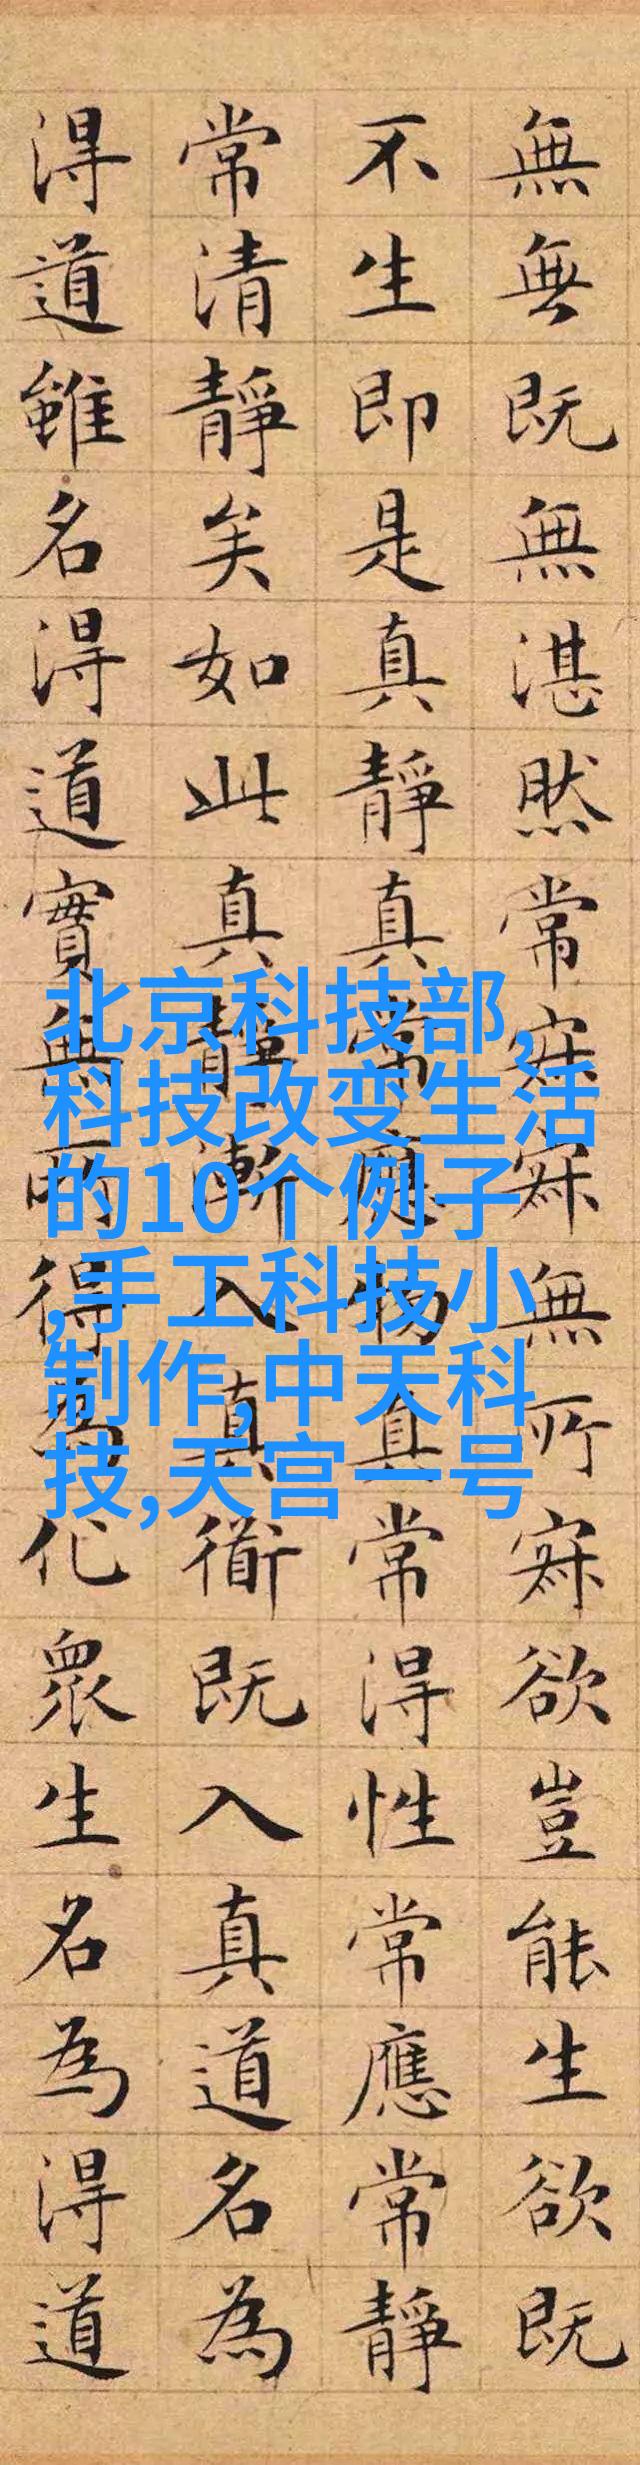 無無既無湛然常寂寂無所寂欲豈能生欲既
不生即是真靜真常應物真常得性常應常靜
常清靜矣如此真靜漸入真衜既入真道名為
得道雖名得道實無所得為化眾生名為得道
北京科技部,
科技改变生活
的10个例子
,手工科技小
制作,中天科
技,天宫一号